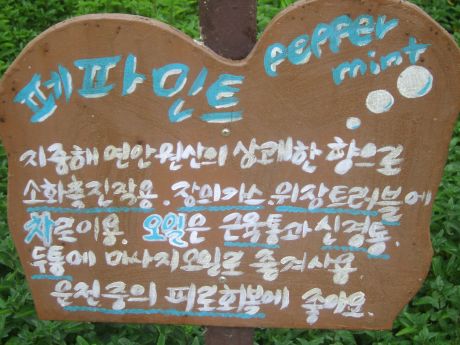 페파민트 PePPer
mint
지중해 연안 원산의 상쾌한 향으로
소화촉진작용. 장의가스. 위장트러블에
차로이용. 오일은 근육통과 신경통.
두통에 마사지오일로 즐겨사용.
운전중의 피로회복에 좋아요.